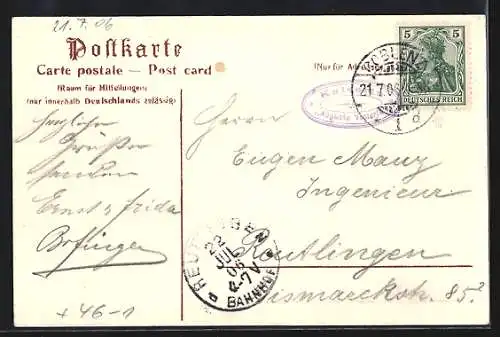 21.7.06
Postkarte
Carte postale — Post card
(Raum für Mitteilungen
nur innerhalb Deutschlands zulässig)
(Nur für
5 5
DEUTSCHES REICH
COBLENZ
21.7.06
1 d
Herzliche
Grüße
senden
Ernst & Frida
Herrn
Eugen Mauz
Ingenieur
Reutlingen
Bismarckstr. 85²
REUTLINGEN
22
JUL
06
4-7 V
BAHNHOF
+ 46-1